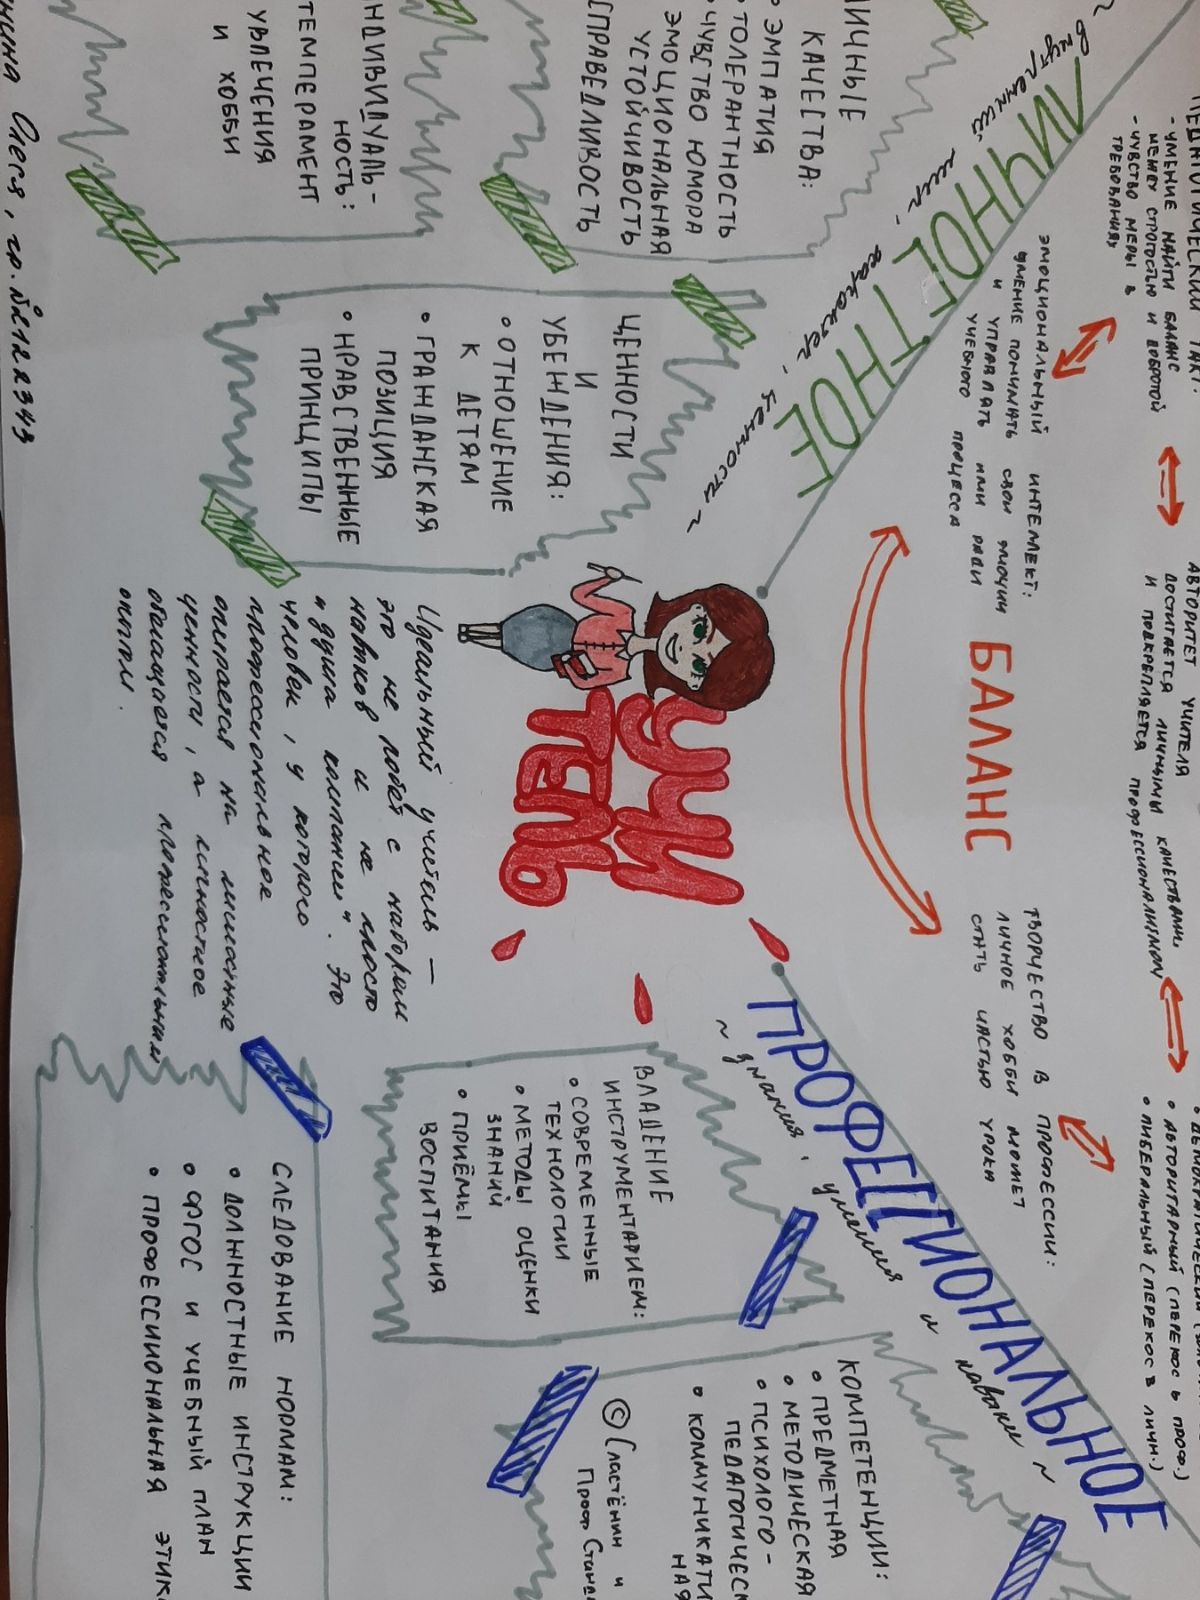 - УМЕНИЕ НАЙТИ БАЛАНС
МЕЖДУ СТРОГОСТЬЮ И ДОБРОТОЙ
- ЧУВСТВО МЕРЫ В
ТРЕБОВАНИЯХ
АВТОРИТЕТ УЧИТЕЛЯ
ДОСТИГАЕТСЯ ЛИЧНЫМИ КАЧЕСТВАМИ,
И ПОДКРЕПЛЯЕТСЯ ПРОФЕССИОНАЛИЗМОМ
• АВТОРИТАРНЫЙ (ПЕРЕКОС В ПРОФ.)
• ЛИБЕРАЛЬНЫЙ (ПЕРЕКОС В ЛИЧН.)
ЭМОЦИОНАЛЬНЫЙ ИНТЕЛЛЕКТ:
УМЕНИЕ ПОНИМАТЬ СВОИ ЭМОЦИИ
И УПРАВЛЯТЬ ИМИ РАДИ
УЧЕБНОГО ПРОЦЕССА
БАЛАНС
ТВОРЧЕСТВО В ПРОФЕССИИ:
ЛИЧНОЕ ХОББИ МОЖЕТ
СТАТЬ ЧАСТЬЮ УРОКА
ЛИЧНОСТНОЕ
~ внутренний мир, характер, ценности ~
ПРОФЕССИОНАЛЬНОЕ
~ знания, умения и навыки ~
ЛИЧНЫЕ
КАЧЕСТВА:
• ЭМПАТИЯ
• ТОЛЕРАНТНОСТЬ
• ЧУВСТВО ЮМОРА
ЭМОЦИОНАЛЬНАЯ
УСТОЙЧИВОСТЬ
СПРАВЕДЛИВОСТЬ
ИНДИВИДУАЛЬ-
НОСТЬ:
ТЕМПЕРАМЕНТ
УВЛЕЧЕНИЯ
И ХОББИ
ЦЕННОСТИ
И
УБЕЖДЕНИЯ:
• ОТНОШЕНИЕ
К ДЕТЯМ
• ГРАЖДАНСКАЯ
ПОЗИЦИЯ
• НРАВСТВЕННЫЕ
ПРИНЦИПЫ
УЧИ
ТЕЛЬ
Идеальный учитель —
это не робот с набором
навыков и не просто
"душа компании". Это
человек, у которого
профессиональное
опирается на личные
ценности, а личностное
обогащается профессиональным
опытом.
ВЛАДЕНИЕ
ИНСТРУМЕНТАРИЕМ:
• СОВРЕМЕННЫЕ
ТЕХНОЛОГИИ
• МЕТОДЫ ОЦЕНКИ
ЗНАНИЙ
• ПРИЁМЫ
ВОСПИТАНИЯ
КОМПЕТЕНЦИИ:
• ПРЕДМЕТНАЯ
• МЕТОДИЧЕСКАЯ
• ПСИХОЛОГО-
ПЕДАГОГИЧЕСК
• КОММУНИКАТИ
НАЯ
© Сластёнин и
Проф Станд
СЛЕДОВАНИЕ НОРМАМ:
• ДОЛЖНОСТНЫЕ ИНСТРУКЦИИ
• ФГОС И УЧЕБНЫЙ ПЛАН
• ПРОФЕССИОНАЛЬНАЯ ЭТИК